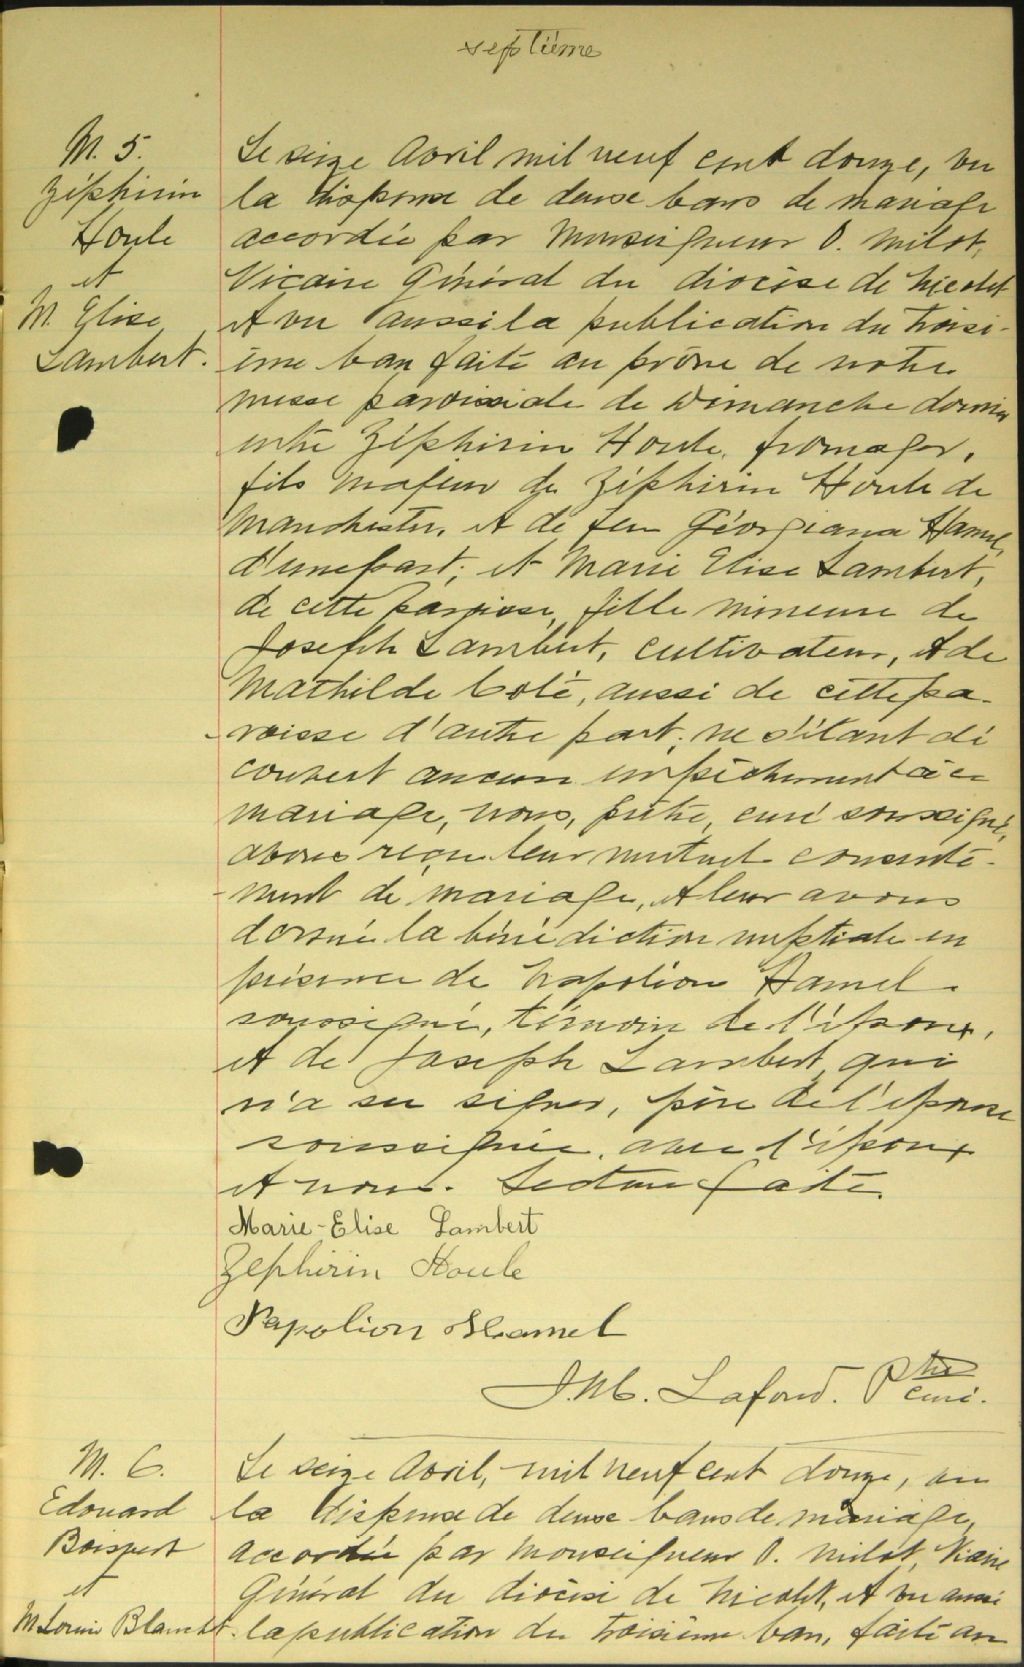 septième
M. 5.
Zéphirin
Houle
et
M. Elise
Lambert.
Le seize Avril mil neuf cent douze, vu
la dispense de deux bans de mariage
accordée par Monseigneur O. Milot,
Vicaire Général du diocèse de Nicolet
et vu aussi la publication du troisi-
ème ban faite au prône de notre
messe paroissiale de Dimanche dernier
entre Zéphirin Houle, fromager,
fils majeur de Zéphirin Houle de
Manchester, et de feu Géorgiana Hamel,
d'une part; et Marie Elise Lambert,
de cette paroisse, fille mineure de
Joseph Lambert, cultivateur, et de
Mathilde Coté, aussi de cette pa-
-roisse d'autre part; ne s'étant dé
couvert aucun empêchement à ce
mariage, nous, prêtre, curé soussigné,
avons reçu leur mutuel consente-
-ment de mariage, et leur avons
donné la bénédiction nuptiale en
présence de Napoléon Hamel
soussigné, témoin de l'époux,
et de Joseph Lambert, qui
n'a su signer, père de l'épouse
soussignée, avec l'époux
et nous. Lecture faite.
Marie-Elise Lambert
Zephirin Houle
Napolion Hamel
J.M. Lafond. Ptre curé.
M. 6.
Edouard
Boisvert
et
M Louise Blanchet.
Le seize Avril, mil neuf cent douze, vu
la dispense de deux bans de mariage,
accordée par Monseigneur O. Milot, Vicaire
Général du diocèse de Nicolet, et vu aussi
la publication du troisième ban, faite au